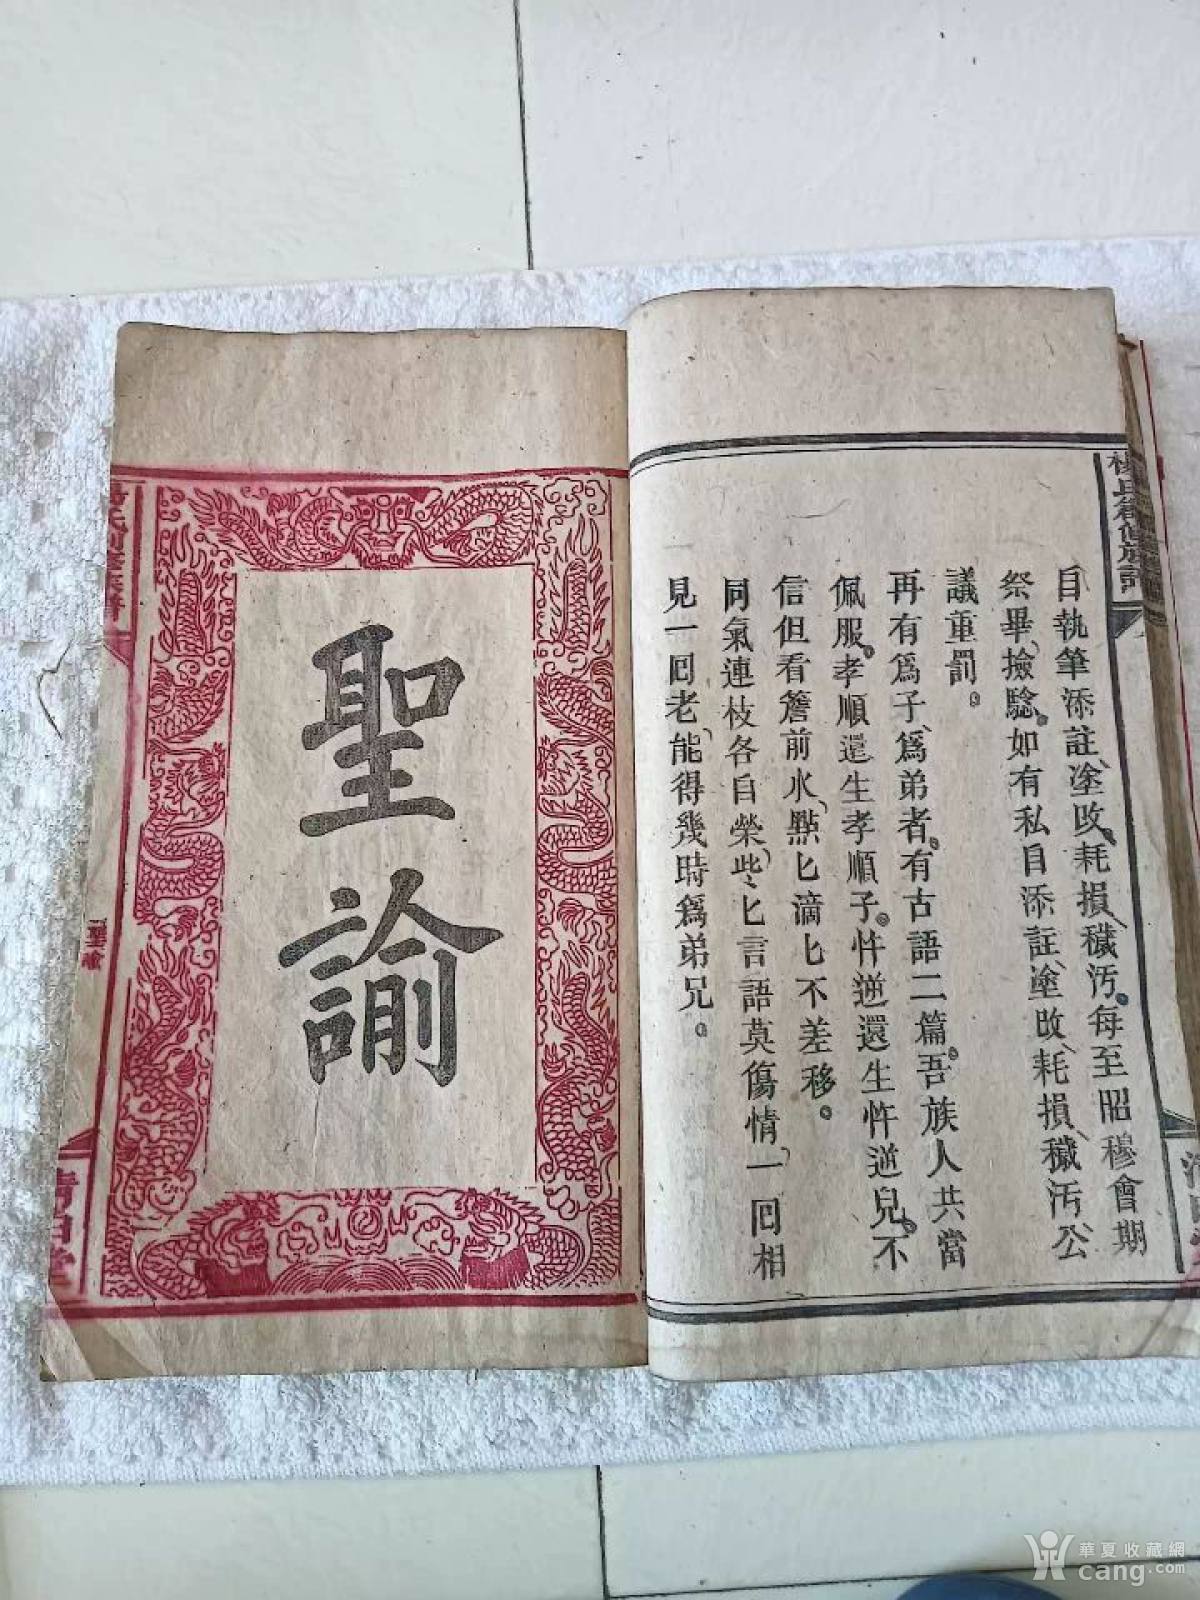 自執筆添註、塗改、耗損、穢汚。每至昭穆會期
祭畢、撿騐。如有私自添註、塗改、耗損、穢汚、公
議重罰。
再有爲子、爲弟者、有古語二篇。吾族人共當
佩服。孝順還生孝順子。忤逆還生忤逆兒。不
信但看簷前水、點匕滴匕不差移。
同氣連枝各自榮、些〻匕言語莫傷情、一囘相
見一囘老、能得幾時爲弟兄。
聖諭
楊氏族譜
聖諭
清白堂
華夏收藏網
cang.com